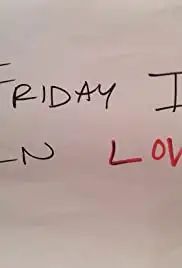 FRIDAY I
IN LOV